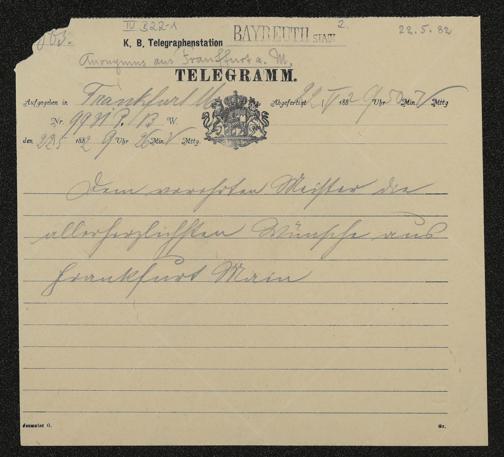 IV B 22-1 2. 22.5.82
K. B. Telegraphenstation BAYREUTH STADT
Anonymus aus Frankfurt a. M.
TELEGRAMM.
Aufgegeben in Frankfurt M Abgefertigt 22 V 1882 9 Uhr 50 Min. V Mttg
Nr. 9981 P. 13 W.
den 22 5 1882 9 Uhr Min. V Mttg.
Dem verehrten Meister die
allerherzlichsten Wünsche aus
Frankfurt Main
Gr.